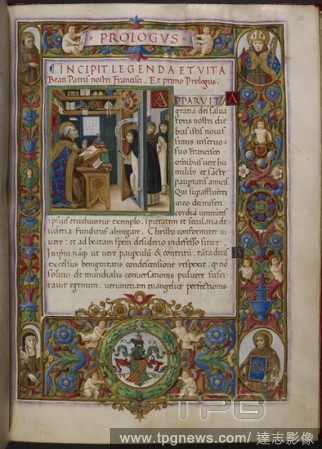 PROLOGUS
INCIPIT LEGENDA ET VITA
Beati Patris nostri Francisci. Et primo Prologus.
APPARVIT
gratia dei salua
toris nostri die
bus istis nouis
simis in seruo
suo Francisco
omnibus uere hu
milibus et sacrę
paupertatis amicis.
Qui superaffluentē
in eo dei miseri
cordiā uenerātes
ipsius erudiuntur exemplo: ipietatem et secularia de
sideria funditus abnegare. Christo conformiter ui
uere: et ad beatam spem desiderio indefesso sitire.
In ipsum nāq, ut uere paupculū & contritū: tāta dei
excelsus benignitatis condescensione respexit: q, nō
solum de mundialis conuersationis puluere susci
tauit egenum: uerumetiam euangelicę perfectionis
TPG
www.tpgnews.com / 達志影像